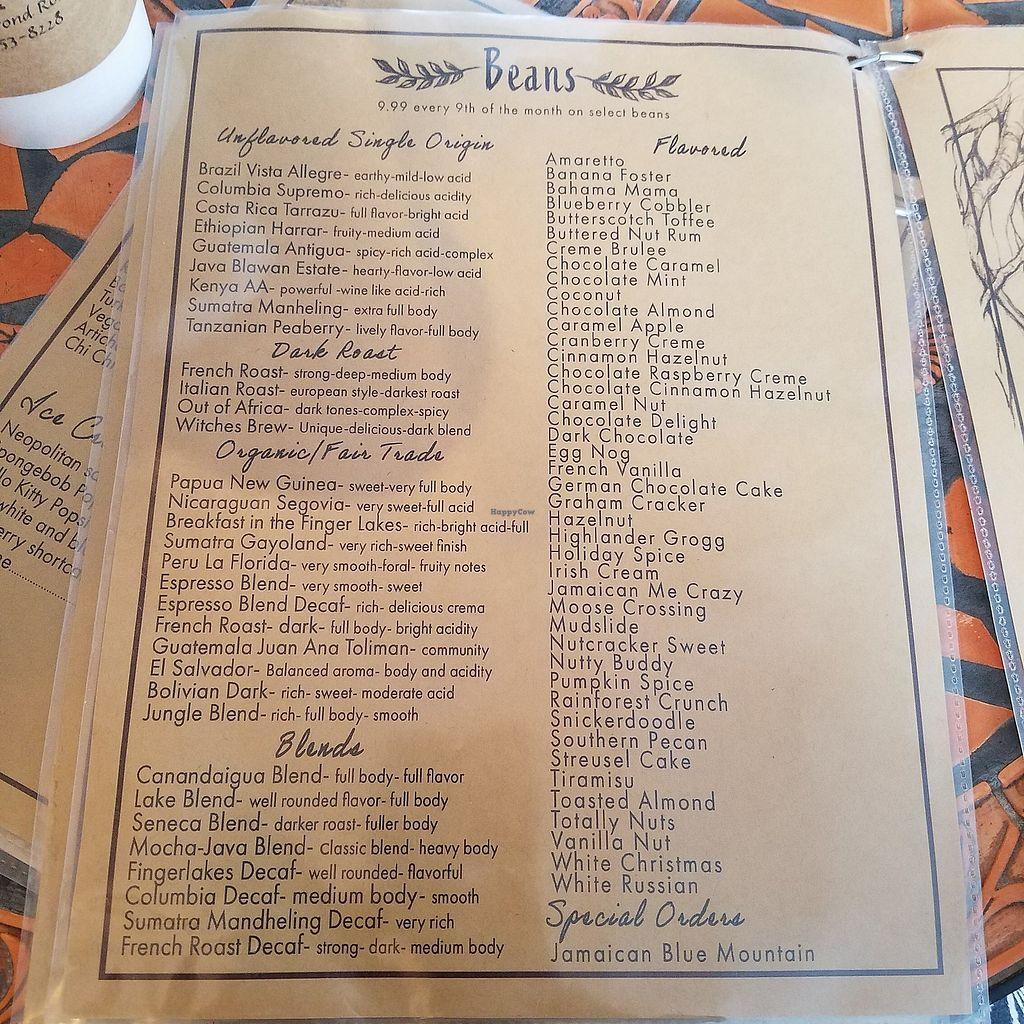 ond R
53-8228
Beans
9.99 every 9th of the month on select beans
Unflavored Single Origin
Brazil Vista Allegre- earthy-mild-low acid
Columbia Supremo- rich-delicious acidity
Costa Rica Tarrazu- full flavor-bright acid
Ethiopian Harrar- fruity-medium acid
Guatemala Antigua- spicy-rich acid-complex
Java Blawan Estate- hearty-flavor-low acid
Kenya AA- powerful -wine like acid-rich
Sumatra Manheling- extra full body
Tanzanian Peaberry- lively flavor-full body
Dark Roast
French Roast- strong-deep-medium body
Italian Roast- european style-darkest roast
Out of Africa- dark tones-complex-spicy
Witches Brew- Unique-delicious-dark blend
Organic/Fair Trade
Papua New Guinea- sweet-very full body
Nicaraguan Segovia- very sweet-full acid
Breakfast in the Finger Lakes- rich-bright acid-full
Sumatra Gayoland- very rich-sweet finish
Peru La Florida- very smooth-foral- fruity notes
Espresso Blend- very smooth- sweet
Espresso Blend Decaf- rich- delicious crema
French Roast- dark- full body- bright acidity
Guatemala Juan Ana Toliman- community
El Salvador- Balanced aroma- body and acidity
Bolivian Dark- rich- sweet- moderate acid
Jungle Blend- rich- full body- smooth
Blends
Canandaigua Blend- full body- full flavor
Lake Blend- well rounded flavor- full body
Seneca Blend- darker roast- fuller body
Mocha-Java Blend- classic blend- heavy body
Fingerlakes Decaf- well rounded- flavorful
Columbia Decaf- medium body- smooth
Sumatra Mandheling Decaf- very rich
French Roast Decaf- strong- dark- medium body
Flavored
Amaretto
Banana Foster
Bahama Mama
Blueberry Cobbler
Butterscotch Toffee
Buttered Nut Rum
Creme Brulee
Chocolate Caramel
Chocolate Mint
Coconut
Chocolate Almond
Caramel Apple
Cranberry Creme
Cinnamon Hazelnut
Chocolate Raspberry Creme
Chocolate Cinnamon Hazelnut
Caramel Nut
Chocolate Delight
Dark Chocolate
Egg Nog
French Vanilla
German Chocolate Cake
Graham Cracker
Hazelnut
Highlander Grogg
Holiday Spice
Irish Cream
Jamaican Me Crazy
Moose Crossing
Mudslide
Nutcracker Sweet
Nutty Buddy
Pumpkin Spice
Rainforest Crunch
Snickerdoodle
Southern Pecan
Streusel Cake
Tiramisu
Toasted Almond
Totally Nuts
Vanilla Nut
White Christmas
White Russian
Special Orders
Jamaican Blue Mountain
HappyCow
Artich
Chi Ch
Ice C
Neopolitan
pongebob Po
lo Kitty Pops
white and bl
erry shortca